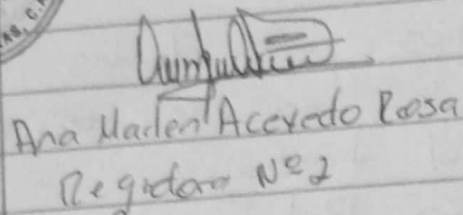 AS, C.
Ana Marlen Acevedo Rosa
Regidora Nº 2